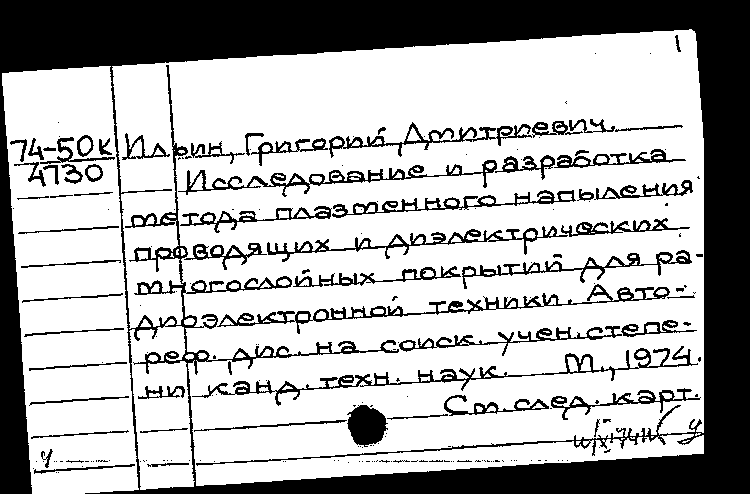 1
74-50к Ильин, Григорий Дмитриевич.
4730 Исследование и разработка
метода плазменного напыления
проводящих и диэлектрических
многослойных покрытий для ра-
диоэлектронной техники. Авто-
реф. дис. на соиск. учен. степе-
ни канд. техн. наук. М., 1974.
См. след. карт.
у